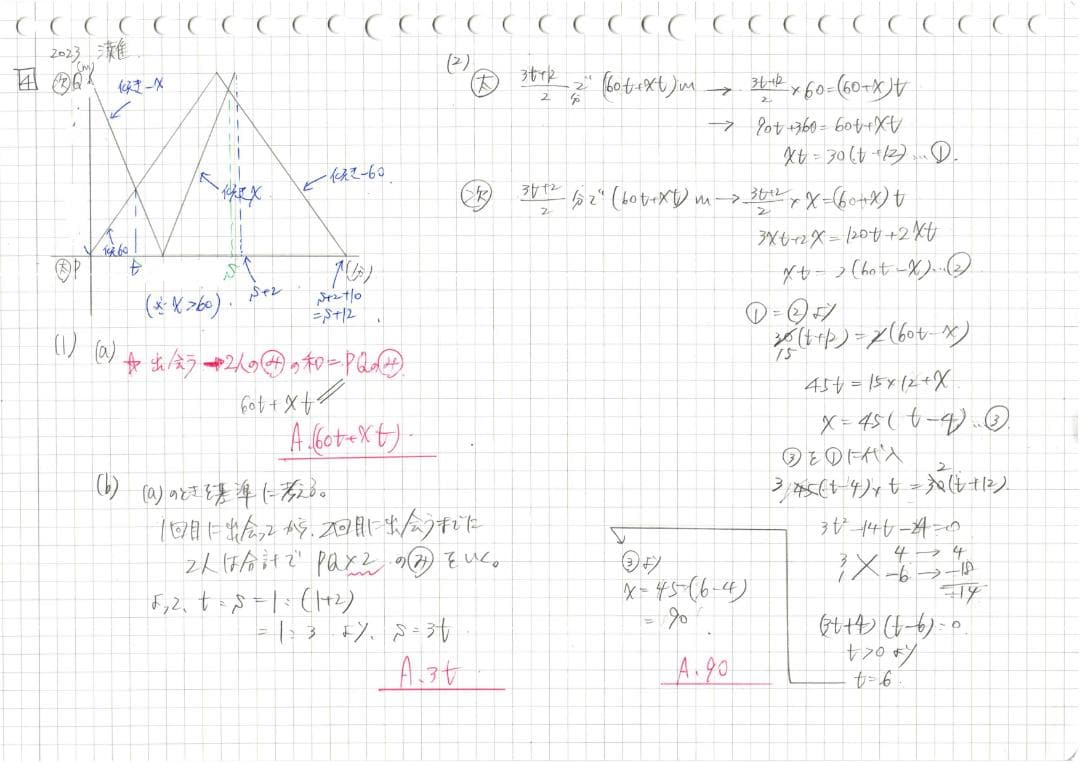 2023 灘
4
次Q (m)
傾き-x
傾き60
傾きx
傾き-60
太P
t
s
s+2
s+2+10
=s+12
(分)
(※ x>60)
(1) (a) ☆出会う→2人のみの和=PQのみ
60t+xt
A.(60t+xt)
(b) (a)のときを基準に考える。
1回目に出会ってから、2回目に出会うまでに
2人は合計で PQ×2 のみをいく。
よって、t:s=1:(1+2)
=1:3 より、s=3t
A.3t
(2)
太 3t+12/2 分で(60t+xt)m → 3t+12/2×60=(60+x)t
→ 90t+360=60t+xt
xt=30(t+12)…①.
次 3t+2/2 分で(60t+xt)m→3t+2/2×x=(60+x)t
3xt+2x=120t+2xt
xt=2(60t-x)…②
①=②より
30(t+12)=2(60t-x)
15
45t=15×12+x
x=45(t-4)…③
③を①に代入
3 45(t-4)×t=30(t+12)
2
3t²-14t-24=0
3 4→4
1 -6→-18
-14
(3t+4)(t-6)=0
t>0より
t=6
③より
x=45(6-4)
=90
A.90